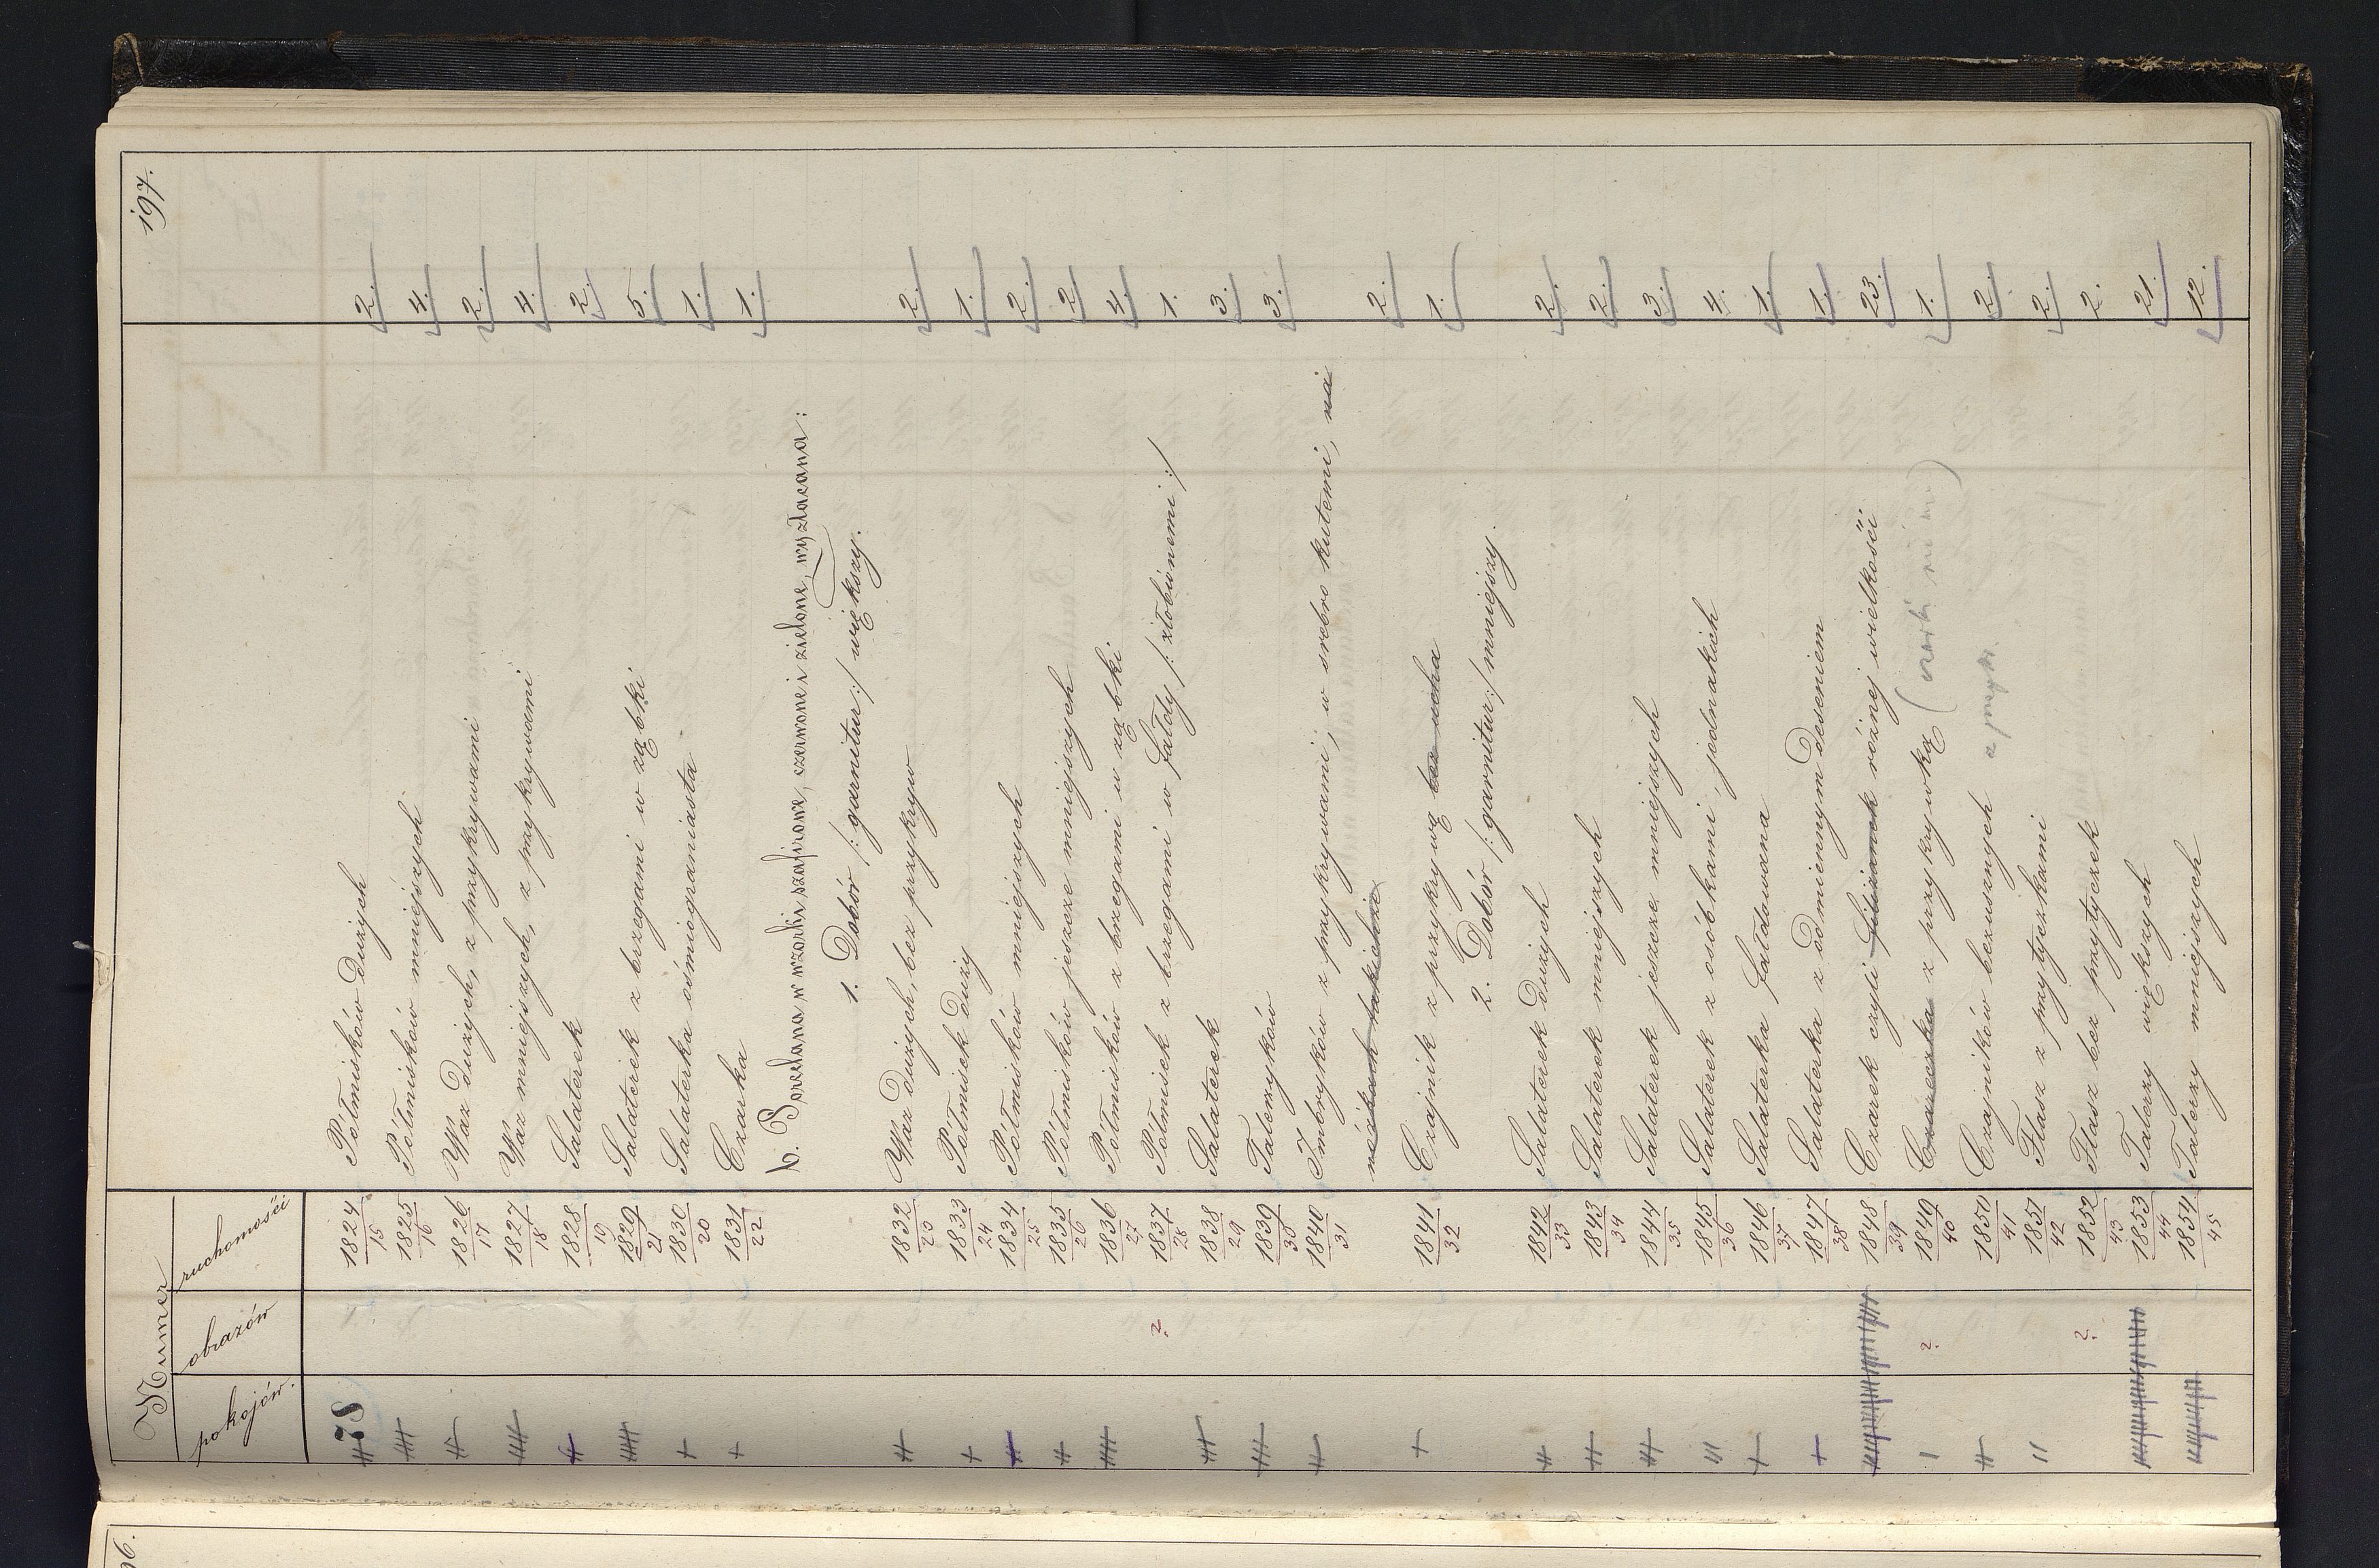 197.
Numer
pokojów. obrazów ruchomości
78 1824/15 Półmisków dużych 2.
1825/16 Półmisków mniejszych 4.
1826/17 Waz dużych, z przykrywami 2.
1827/18 Waz mniejszych, z przykrywami 4.
1828/19 Salaterek 2.
1829/21 Salaterek z brzegami w ząbki 5.
1830/20 Salaterka ośmiograniasta 1.
1831/22 Czarka 1.
b. Porcelana w wzorki szafirowe, czerwone i zielone, wyzłacana:
1. Dobór /: garnitur :/ większy.
1832/23 Waz dużych, bez przykryw 2.
1833/24 Półmisek duży 1.
1834/25 Półmisków mniejszych 2.
1835/26 Półmisków jeszcze mniejszych 2
1836/27 Półmisków z brzegami w ząbki 4.
1837/28 ? Półmisek z brzegami w fałdy /: żłobionemi :/ 1.
1838/29 Salaterek 3.
1839/30 Talerzyków 3.
1840/31 Imbryków z przykrywami, w srebro kutemi, na
nóżkach takichże 2.
1841/32 Czajnik z przykrywą bez ucha 1.
2. Dobór /: garnitur :/ mniejszy.
1842/33 Salaterek dużych 2.
1843/34 Salaterek mniejszych 2.
1844/35 Salaterek jeszcze mniejszych 3.
1845/36 Salaterek z osóbkami, jednakich 4.
1846/37 Salaterka fałdowana 1.
1847/38 Salaterka z odmiennym deseniem 1.
1848/39 Czarek czyli filiżanek różnej wielkości 23.
1849/40 ? Czareczka z przykrywką 1.
1850/41 Czajników bezusznych 2.
1851/42 Flasz z przytyczkami 2.
1852/43 ? Flasz bez przytyczek 2.
1853/44 Talerzy większych 21.
1854/45 Talerzy mniejszych 12.